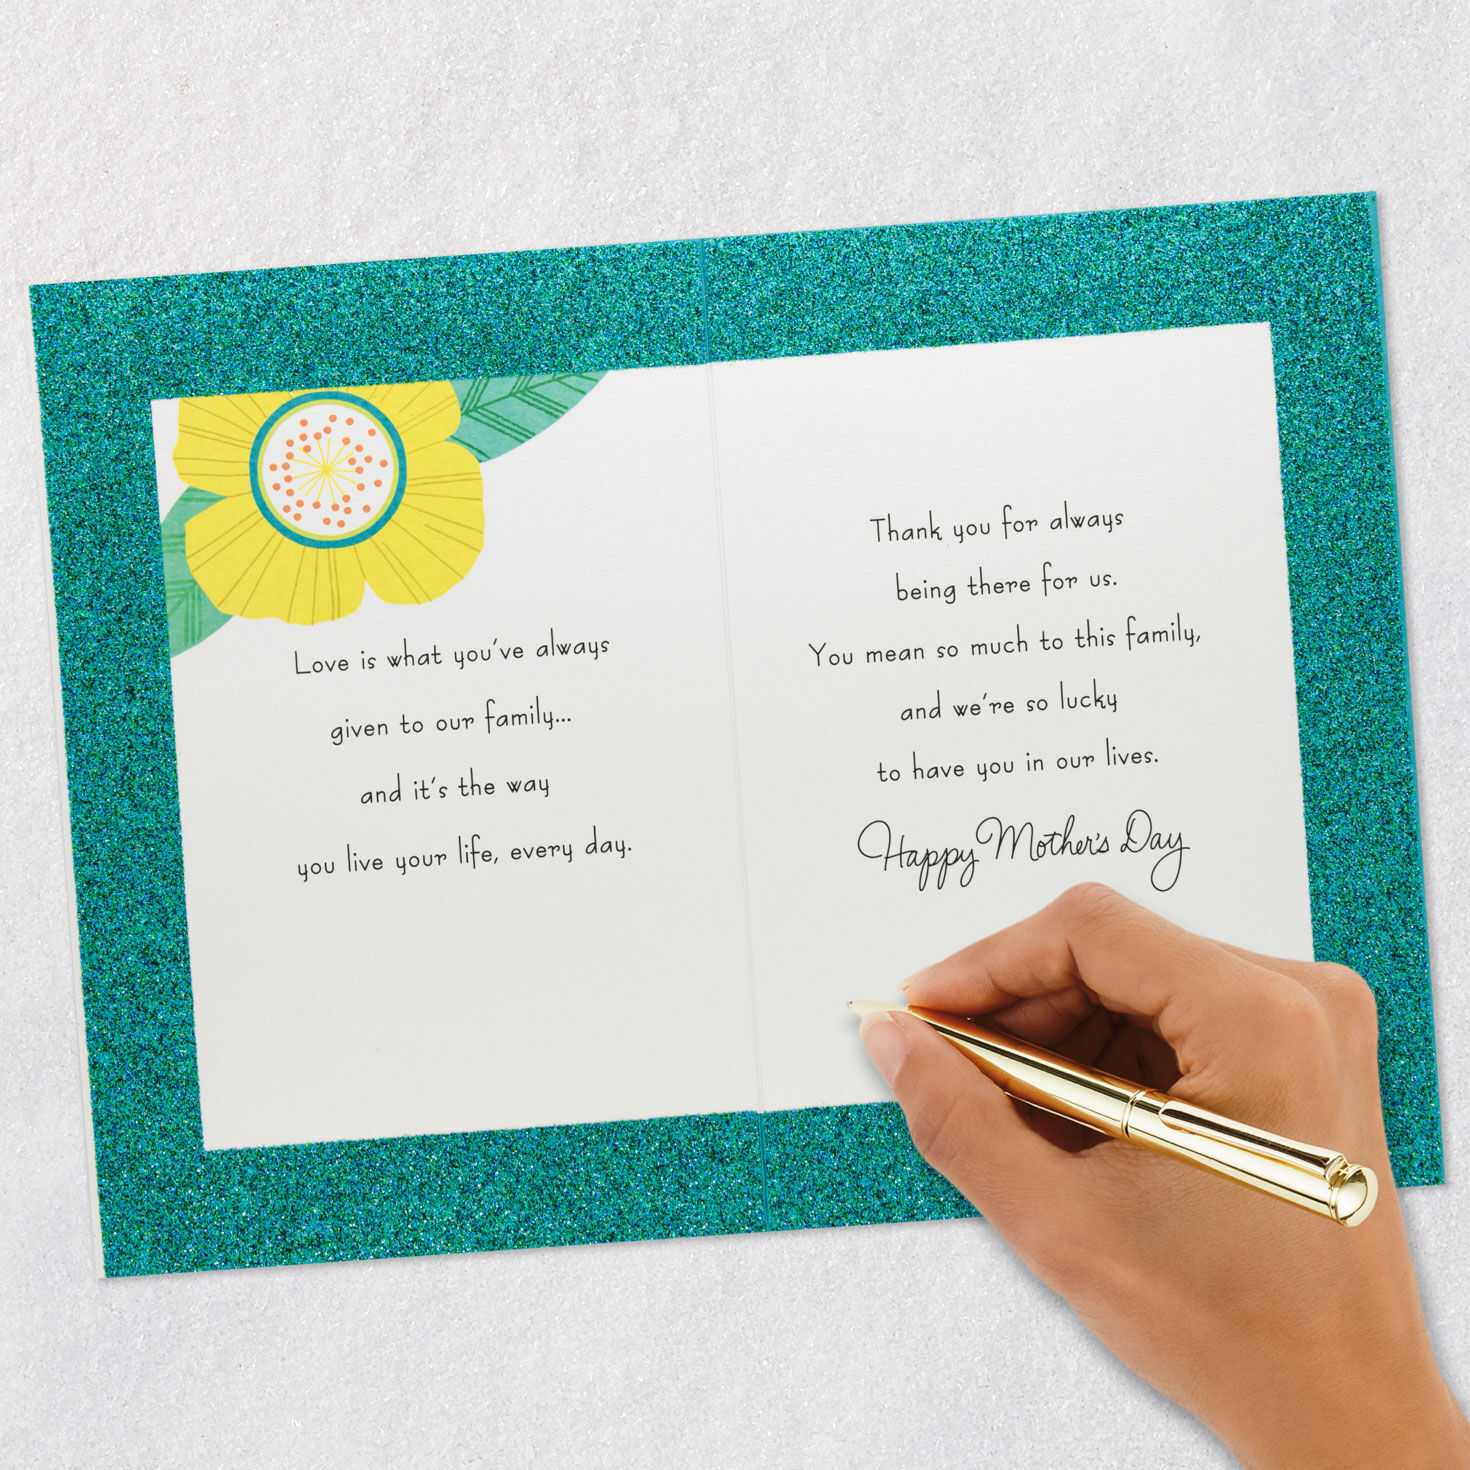 Love is what you've always
given to our family...
and it's the way
you live your life, every day.
Thank you for always
being there for us.
You mean so much to this family,
and we're so lucky
to have you in our lives.
Happy Mother's Day